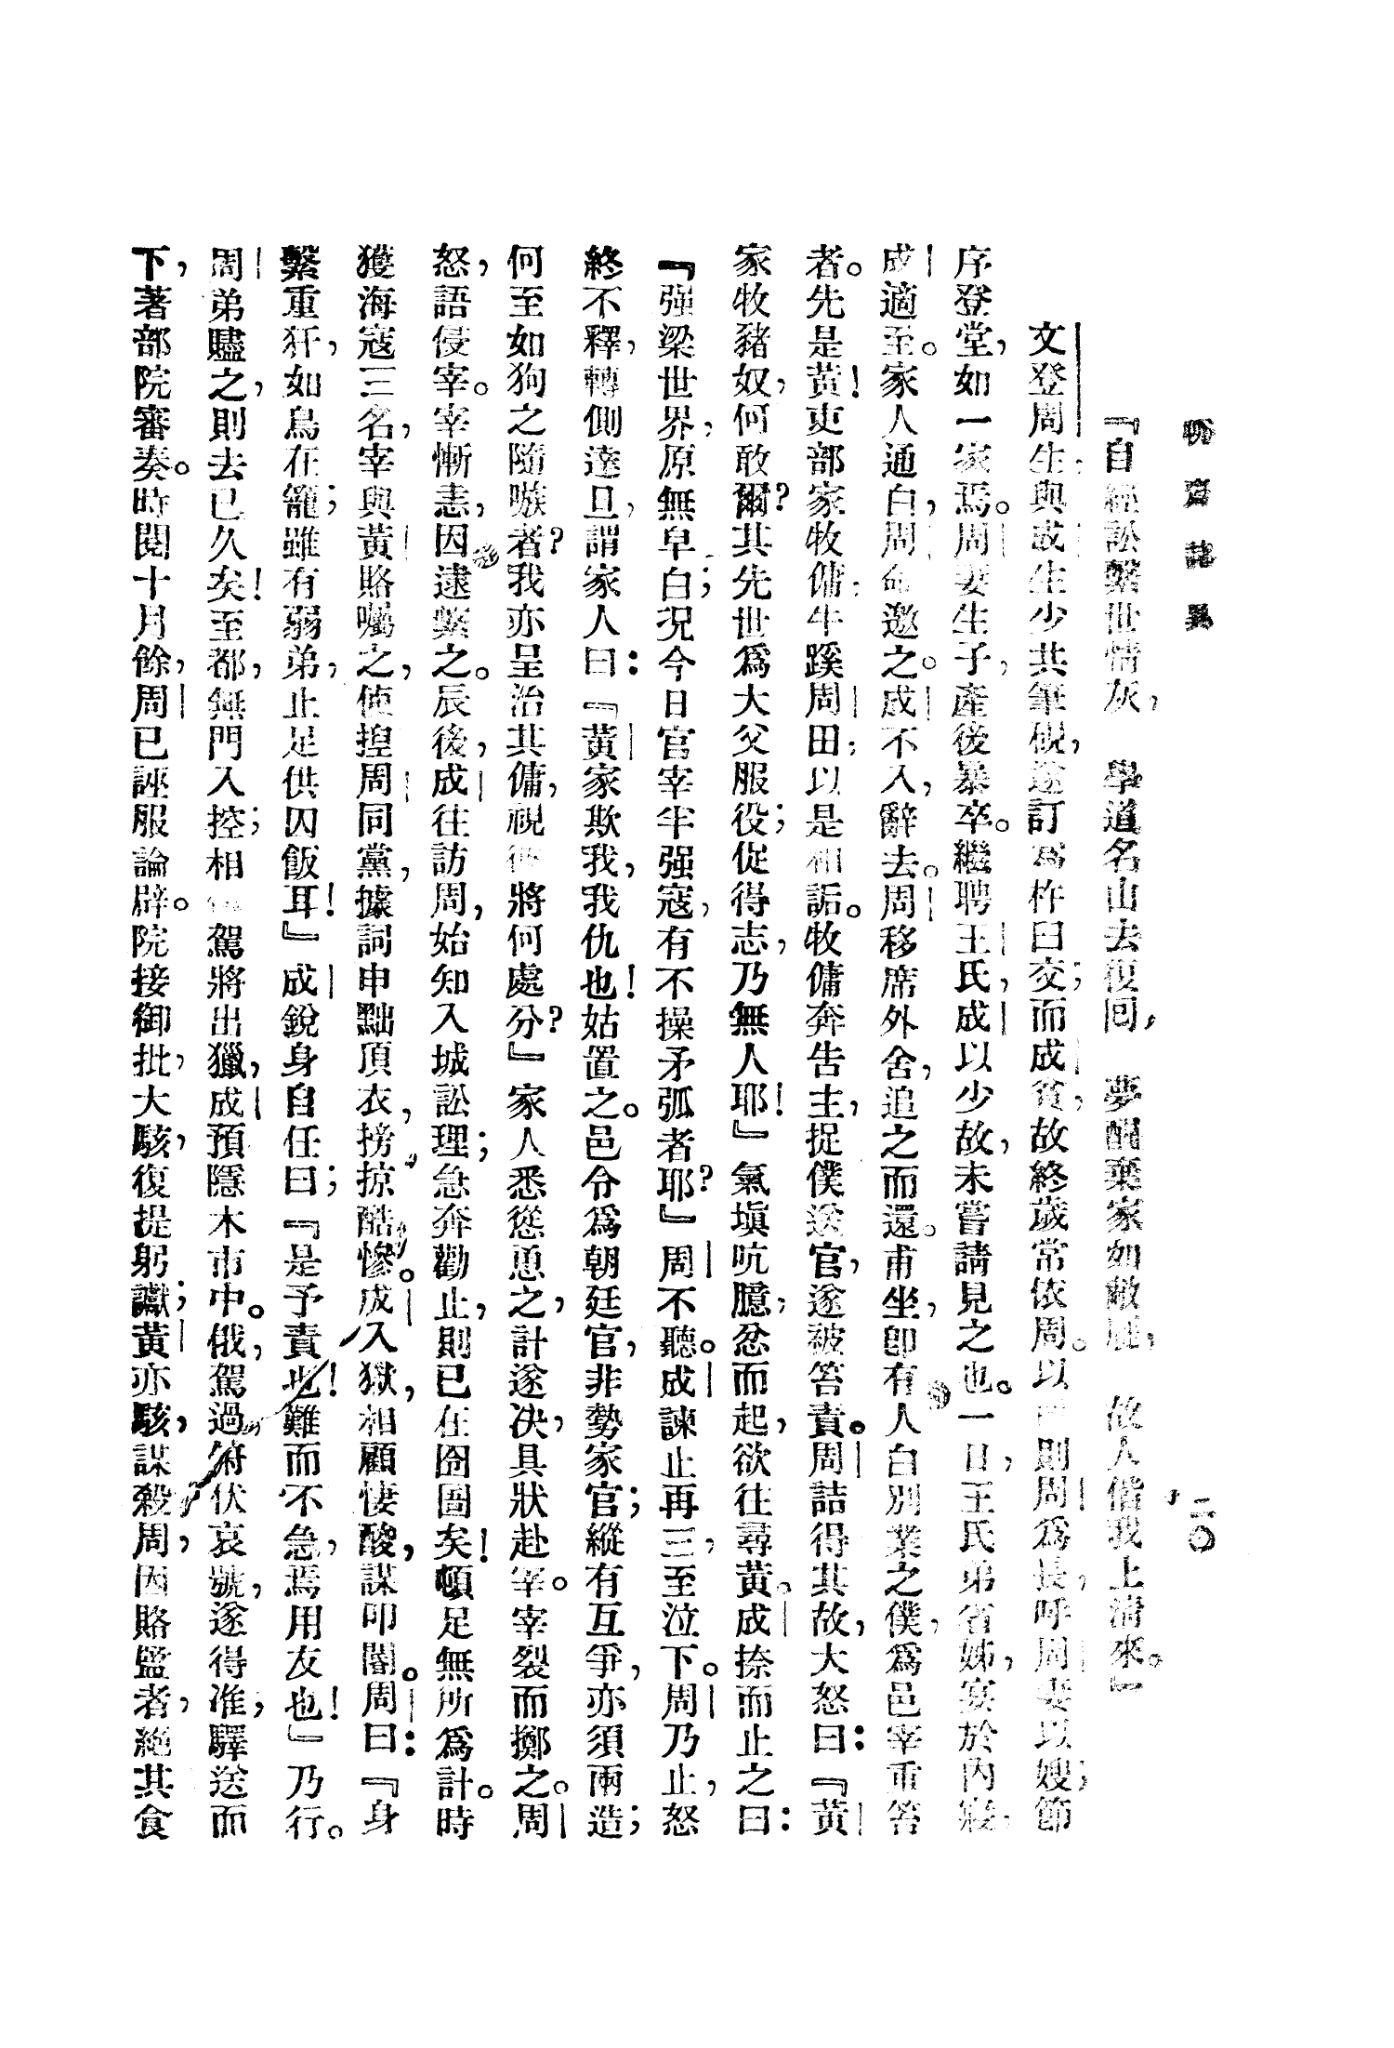 聊齋誌異
二〇
『自經訟繫世情灰,　學道名山去復回,　夢醒棄家如敝屣,　故人偕我上清來。』
文登周生與成生少共筆硯,遂訂為杵臼交;而成貧,故終歲常依周。以齒則周為長,呼周妻以嫂;節
序登堂,如一家焉。周妻生子,產後暴卒。繼聘王氏,成以少故,未嘗請見之也。一日,王氏弟省姊,宴於內寢;
成適至。家人通白,周命邀之。成不入,辭去。周移席外舍,追之而還。甫坐,卽有人白別業之僕,為邑宰重笞
者。先是黃!吏部家牧傭,牛蹊周田;以是相詬。牧傭奔告主,捉僕送官,遂被笞責。周詰得其故,大怒曰:『黃
家牧豬奴,何敢爾?其先世爲大父服役;促得志,乃無人耶!』氣塡吭臆,忿而起,欲往尋黃。成捺而止之曰:
『强梁世界,原無皁白;况今日官宰半强寇,有不操矛弧者耶?』周不聽。成諫止再三,至泣下。周乃止,怒
終不釋,轉側達旦,謂家人曰:『黃家欺我,我仇也!姑置之。邑令爲朝廷官,非勢家官;縱有互爭,亦須兩造;
何至如狗之隨嗾者?我亦呈治其傭,視彼將何處分?』家人悉慫恿之,計遂决,具狀赴宰。宰裂而擲之。周
怒,語侵宰。宰慚恚,因逮繫之。辰後,成往訪周,始知入城訟理;急奔勸止,則已在囹圄矣!頓足無所爲計。時
獲海寇三名,宰與黃賂囑之,使揑周同黨,據詞申黜頂衣,搒掠酷慘。成入獄,相顧悽酸,謀叩闇。周曰:『身
繫重犴,如鳥在籠;雖有弱弟,止足供囚飯耳!』成銳身自任曰;『是予責也!難而不急,焉用友也!』乃行。
周弟贐之,則去已久矣!至都,無門入控;相 駕將出獵,成預隱木市中。俄,駕過俯伏哀號,遂得准,驛送而
下,著部院審奏。時閱十月餘,周已誣服論辟。院接御批,大駭,復提躬讞;黃亦駭,謀殺周,因賂監者,絕其食